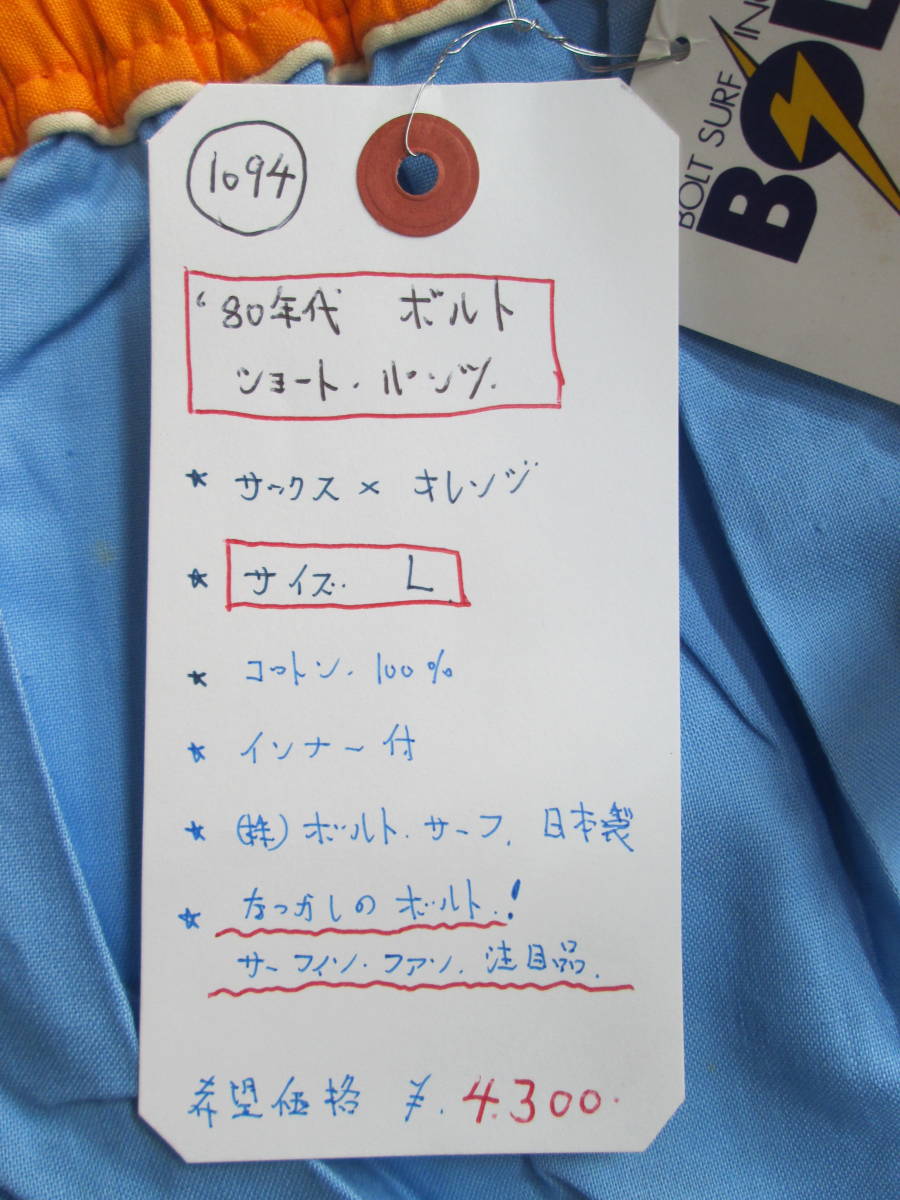 1094
BOLT SURF INC
BOL
'80年代 ボルト
ショート・パンツ.
★ サックス × オレンジ
★ サイズ. L
★ コットン. 100%
★ インナー付
★ (株)ボルト.サーフ. 日本製
★ なつかしの ボルト.!
サーフィン.ファン. 注目品.
希望価格 ¥. 4.300.